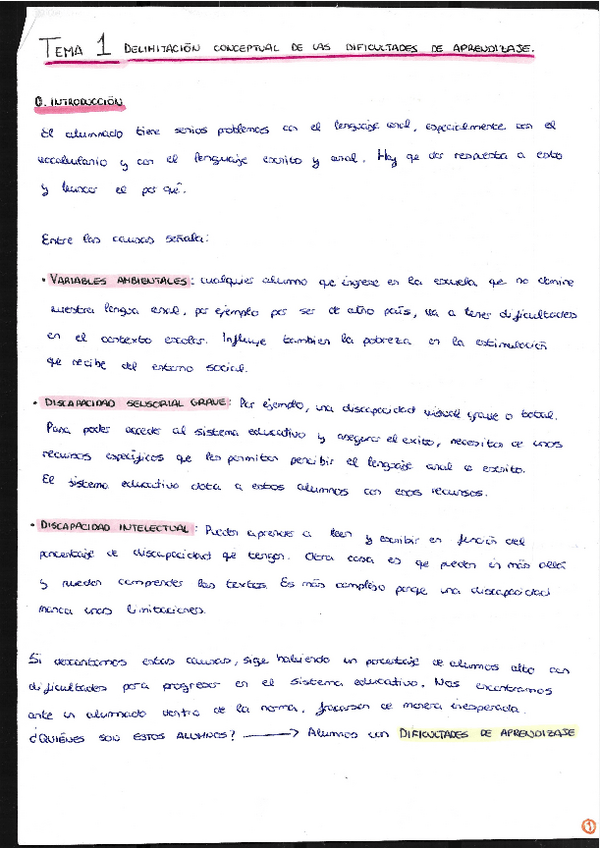 TEMA 1 DELIMITACIÓN CONCEPTUAL DE LAS DIFICULTADES DE APRENDIZAJE.
0. INTRODUCCIÓN
El alumnado tiene serios problemas con el lenguaje oral, especialmente con el
vocabulario y con el lenguaje escrito y oral. Hay que dar respuesta a esto
y buscar el por qué.
Entre las causas señala:
• VARIABLES AMBIENTALES: cualquier alumno que ingrese en la escuela que no domine
nuestra lengua oral, por ejemplo por ser de otro país, va a tener dificultades
en el contexto escolar. Influye tambien la pobreza en la estimulación
que recibe del entorno social.
• DISCAPACIDAD SENSORIAL GRAVE: Por ejemplo, una discapacidad visual grave o total.
Para poder acceder al sistema educativo y asegurar el exito, necesitan de unos
recursos específicos que les permitan percibir el lenguaje oral o escrito.
El sistema educativo dota a estos alumnos con esos recursos.
• DISCAPACIDAD INTELECTUAL: Pueden aprender a leer y escribir en función del
porcentaje de discapacidad que tengan. Otra cosa es que puedan ir más allá
y puedan comprender los textos. Es más complejo porque una discapacidad
marca unas limitaciones.
Si descartamos estas causas, sige habiendo un porcentaje de alumnos alto con
dificultades para progresar en el sistema educativo. Nos encontramos
ante un alumnado dentro de la norma, fracasan de manera inesperada.
¿QUIÉNES SON ESTOS ALUMNOS? → ALUMNOS CON DIFICULTADES DE APRENDIZAJE
1